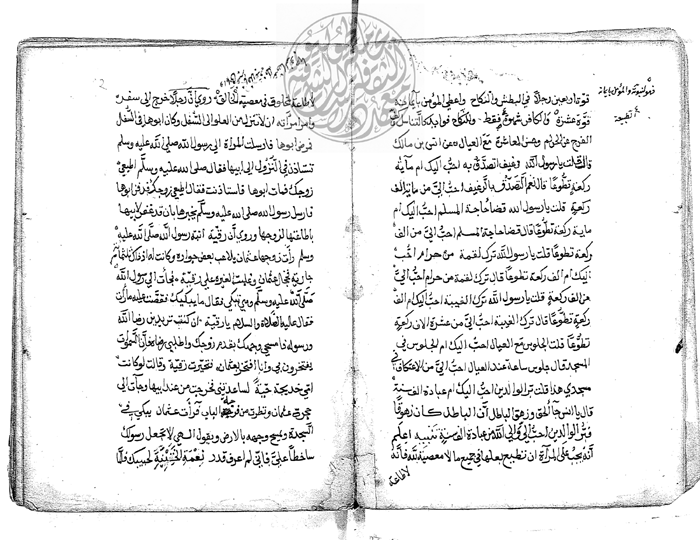 قوة اربعين رجلاً في البطش والنكاح واعطى المؤمن
قوة عشرة والكافر فقط والنكاح فوائد
الفرج عن الحرام وحسن المعاشرة مع العيال عن انس بن مالك
قال قلت يارسول الله رغيف اتصدق به احب اليك ام مأية
ركعة تطوعًا قال نعم التصدق بالرغيف احب الي من مأية الف
ركعة قلت يارسول الله قضا حاجة المسلم احب اليك ام
ماية ركعة تطوعًا قال قضا حاجة المسلم احب الي من الف
ركعة تطوعًا قلت يارسول الله ترك لقمة من حرام احب
اليك ام الف ركعة تطوعًا قال ترك لقمة من حرام احب الي
من الف ركعة قلت يارسول الله ترك الغيبة احب اليك ام الف
ركعة تطوعًا قال ترك الغيبة احب الي من عشرة الاف ركعة
تطوعًا قلت الجلوس مع العيال احب اليك ام الجلوس في
المسجد قال جلوس ساعة عند العيال احب الي من الاعتكاف في
مسجدي هذا قلت بر الوالدين احب اليك ام عبادة الف سنة
قال يا انس جآ الحق وزهق الباطل ان الباطل كان زهوقًا
فبر الوالدين احب الي والى الله من عبادة الف سنة تنبيه اعلم
انه يجب على المرأة ان تطيع بعلها في جميع ما لا معصية لله فانه
لا طاعة
لا طاعة لمخلوق في معصية الخالق روي ان رجلاً خرج الى سفر
وامر امرأته ان لا تنزل من العلو الى السفل وكان ابوها في السفل
فمرض ابوها فارسلت المرأة الى رسول الله صلى الله عليه وسلم
تستاذن في النزول الى ابيها فقال صلى الله عليه وسلم اطيعي
زوجك فمات ابوها فاستاذنت فقال اطيعي زوجك فدفن ابوها
فارسل رسول الله صلى الله عليه وسلم يخبرها بان قد غفر لابيها
باطاعتها لزوجها وروي ان رقية ابنة رسول الله صلى الله عليه
وسلم رأت زوجها عثمان يلاعب بعض جواره وكانت له
جارية فخجل عثمان وغلبت الغيرة على رقية فجأت الى رسول الله
صلى الله عليه وسلم وهي تبكي فقال ما يبكيك فقصت عليه ما رأت
فقال عليه الصلاة والسلام يا رقية ان كنت تريدين رضا الله
ورسوله فامسحي وجهك بقدم زوجك واطلبي رضاه
يفتخرون بي وانا افتخر بعثمان فتحيرت رقية وقالت لو كانت
امي خديجة حية لساعدتني فخرجت من عند ابيها وجآت الى
حجرت عثمان ونظرت من فرجة الباب فرأت عثمان يبكي في
السجدة ويمسح وجهه بالارض ويقول الهي لا تجعل رسولك
ساخطًا علي فاني لم اعرف قدر نعمة لحبيبك